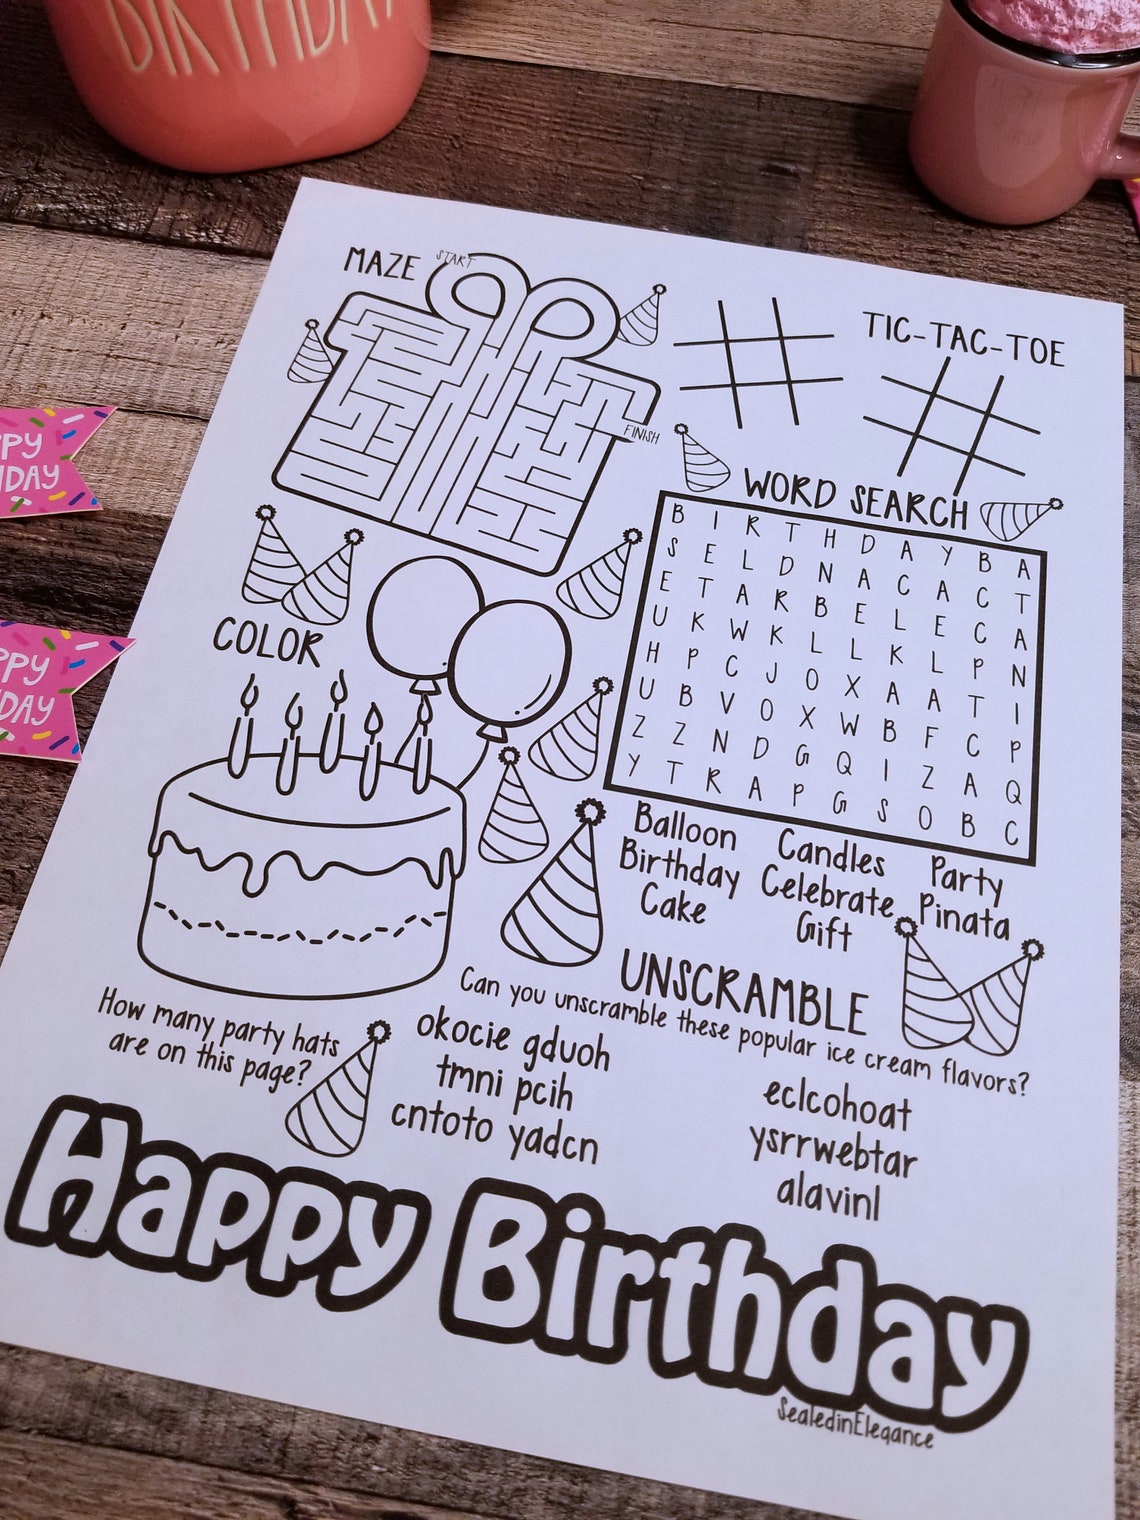 BIRTHDAY
MAZE
START
FINISH
TIC-TAC-TOE
PPY
DAY
PPY
DAY
WORD SEARCH
B I R T H D A Y B A
S E L D N A C A C T
E T A R B E L E C A
U K W K L L K L P N
H P C J O X A A T I
U B V O X W B F C P
Z Z N D G Q I Z A Q
Y T R A P G S O B C
Balloon Candles Party
Birthday Celebrate Pinata
Cake Gift
COLOR
UNSCRAMBLE
Can you unscramble these popular ice cream flavors?
okocie gduoh eclcohoat
tmni pcih ysrrwebtar
cntoto yadcn alavinl
How many party hats
are on this page?
Happy Birthday
SealedinElegance